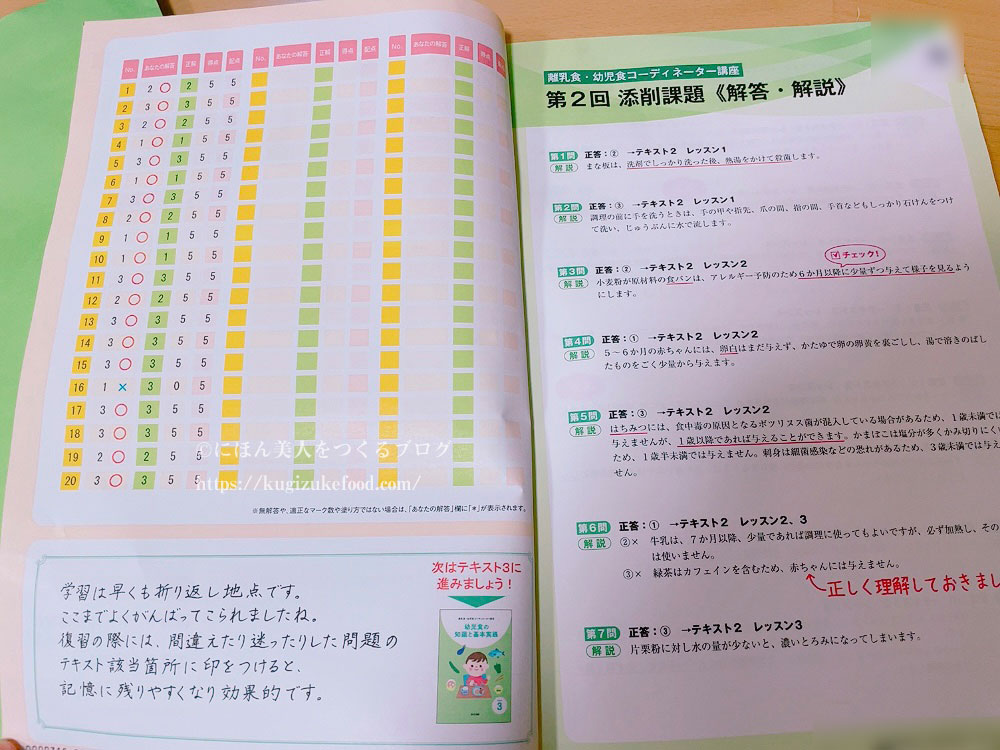 No. あなたの解答 正解 得点 配点 No. あなたの解答 正解 得点 配点 No. あなたの解答 正解 得点
1 2 ○ 2 5 5
2 3 ○ 3 5 5
3 2 ○ 2 5 5
4 1 ○ 1 5 5
5 3 ○ 3 5 5
6 1 ○ 1 5 5
7 3 ○ 3 5 5
8 2 ○ 2 5 5
9 1 ○ 1 5 5
10 1 ○ 1 5 5
11 3 ○ 3 5 5
12 2 ○ 2 5 5
13 3 ○ 3 5 5
14 3 ○ 3 5 5
15 3 ○ 3 5 5
16 1 × 3 0 5
17 3 ○ 3 5 5
18 3 ○ 3 5 5
19 2 ○ 2 5 5
20 3 ○ 3 5 5
©にほん美人をつくるブログ
https://kugizukefood.com/
※無解答や、適正なマーク数や塗り方ではない場合は、「あなたの解答」欄に「*」が表示されます。
学習は早くも折り返し地点です。
ここまでよくがんばってこられましたね。
復習の際には、間違えたり迷ったりした問題の
テキスト該当箇所に印をつけると、
記憶に残りやすくなり効果的です。
次はテキスト3に
進みましょう！
幼児食の
知識と基本実践
3
離乳食・幼児食コーディネーター講座
第2回 添削課題《解答・解説》
第1問 正答：② →テキスト2 レッスン1
解説 まな板は、洗剤でしっかり洗った後、熱湯をかけて殺菌します。
第2問 正答：③ →テキスト2 レッスン1
解説 調理の前に手を洗うときは、手の甲や指先、爪の間、指の間、手首などもしっかり石けんをつけ
て洗い、じゅうぶんに水で流します。
チェック！
第3問 正答：② →テキスト2 レッスン2
解説 小麦粉が原材料の食パンは、アレルギー予防のため6か月以降に少量ずつ与えて様子を見るよう
にします。
第4問 正答：① →テキスト2 レッスン2
解説 5～6か月の赤ちゃんには、卵白はまだ与えず、かたゆで卵の卵黄を裏ごしし、湯で溶きのばし
たものをごく少量から与えます。
第5問 正答：③ →テキスト2 レッスン2
解説 はちみつには、食中毒の原因となるボツリヌス菌が混入している場合があるため、1歳未満では
与えませんが、1歳以降であれば与えることができます。かまぼこは塩分が多くかみ切りにくい
ため、1歳半未満では与えません。刺身は細菌感染などの恐れがあるため、3歳未満では与えま
せん。
第6問 正答：① →テキスト2 レッスン2、3
解説 ②× 牛乳は、7か月以降、少量であれば調理に使ってもよいですが、必ず加熱し、その
は使いません。
③× 緑茶はカフェインを含むため、赤ちゃんには与えません。
正しく理解しておきまし
第7問 正答：③ →テキスト2 レッスン3
解説 片栗粉に対し水の量が少ないと、濃いとろみになってしまいます。